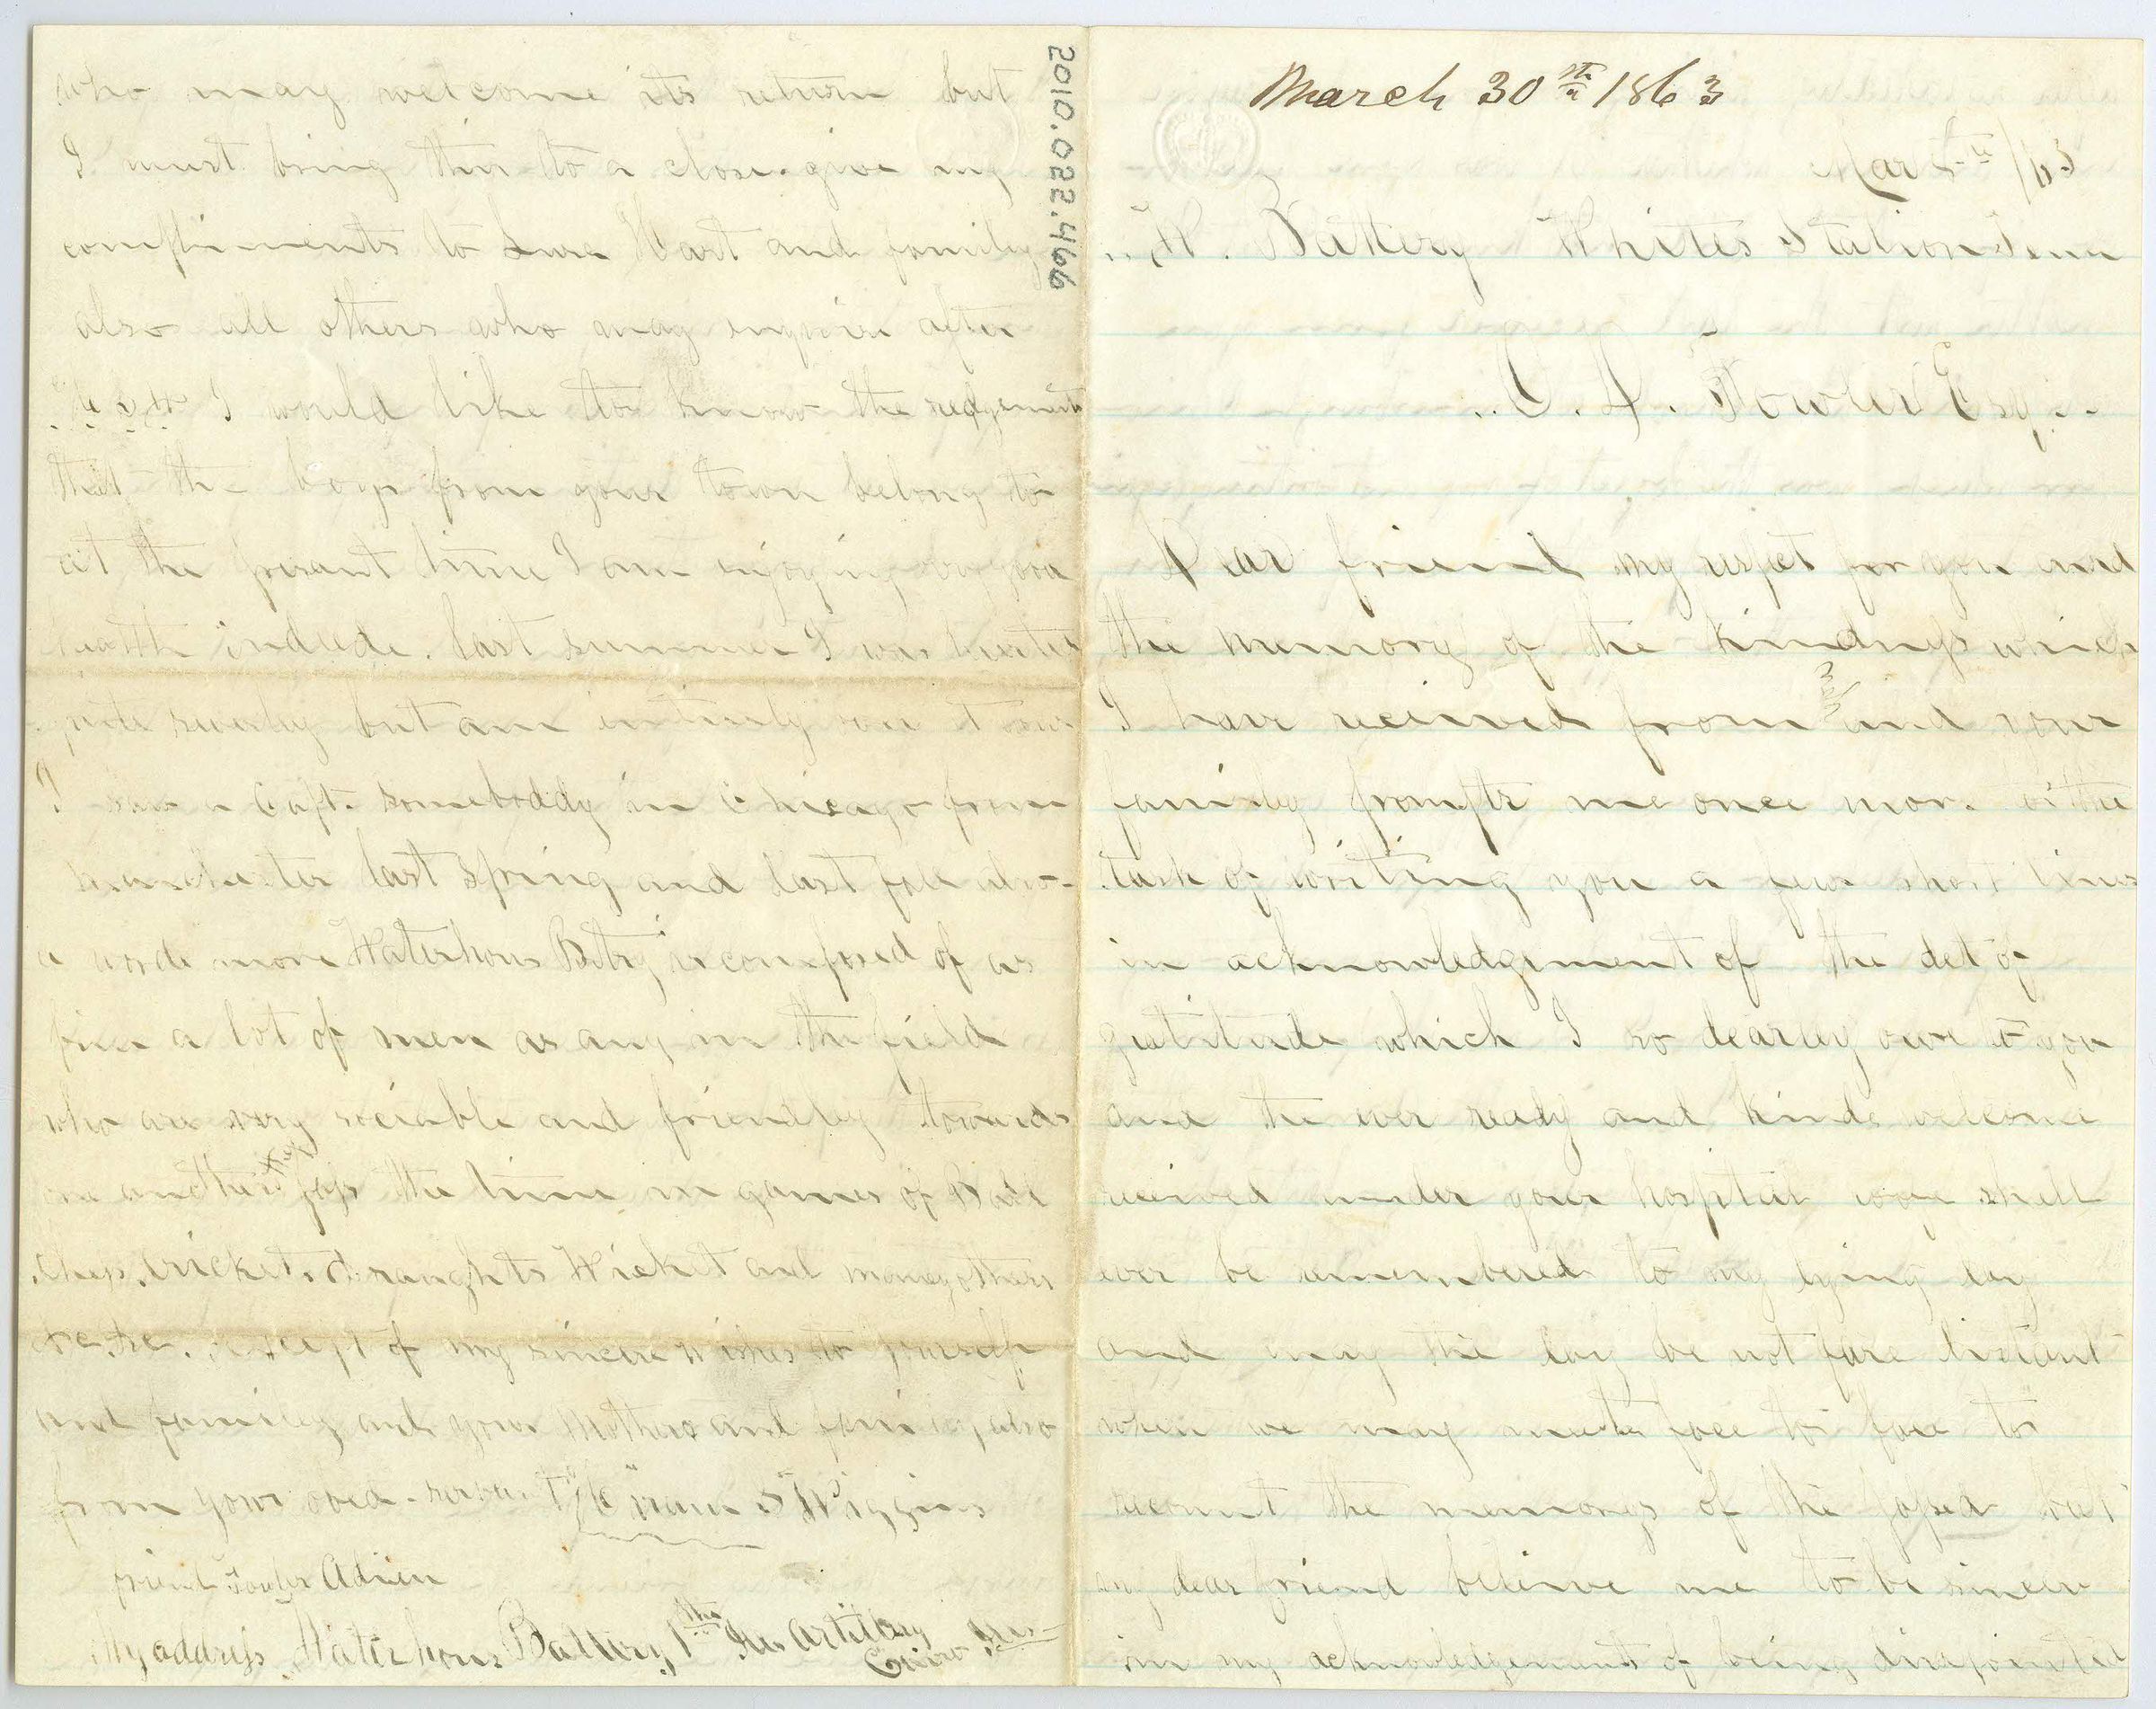 March 30th 1863
Mar 5th /63
W. Battery Whites Station Tenn
Fowler Esq.
Dear friend my respet for you and
the memory of the kindness which
I have received from you and your
family prompts me once more to the
task of writing you a few short lines
in acknowledgement of the det of
gratitude which I so dearly owe to you
and the ever ready and kinde welcome
received under your hospital shell
ever be remembered to my dying day
and may the day be not fare distant
when we may meete face to face to
recount the memorys of the but
my dear friend believe me to be sincere
in my acknowledgements of being disapointed
2010.022.466
who may welcome its return but
I must bring this to a close. give my
compliments to Hart and family
also all others who may inquire after
I would like to know the redgements
that the boys from your town belong to
at the presant time I am enjoying very good
health indeede. last summer I was
severley but am intirely over it now
I saw a Capt. someboddy in Chicago from
Manchester last Spring and last fall also
a worde more Waterhous Batry is composed of as
fine a lot of men as any in the field
who are very sociable and friendly towards
one another they pass the time in games of Ball
Chess, cricket, draughts Wicket and many others
&c. &c. except of my sincere wishes to yourself
and familey and your Mothers and familey also
from your obed. servant Wiggins
friend Fowler Adieu
My address Waterhous Battery 1st Ills Artillery
Cairo Ills